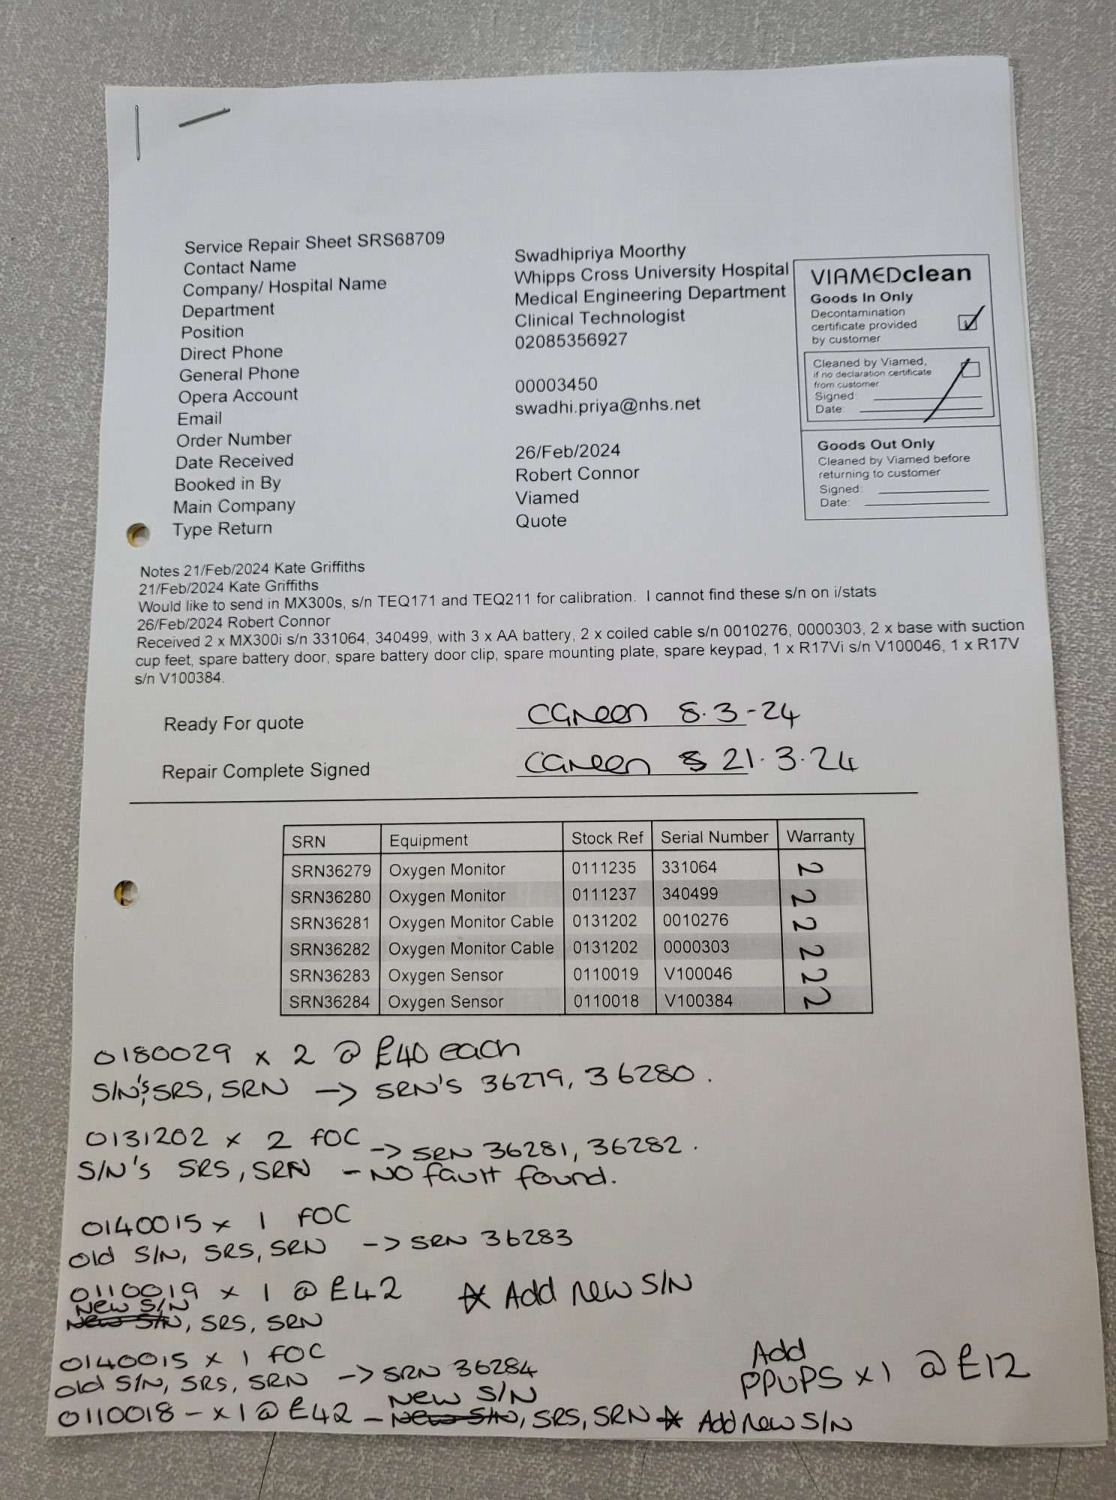 Service Repair Sheet SRS68709
Contact Name Swadhipriya Moorthy
Company/ Hospital Name Whipps Cross University Hospital
Department Medical Engineering Department
Position Clinical Technologist
Direct Phone 02085356927
General Phone
Opera Account 00003450
Email swadhi.priya@nhs.net
Order Number
Date Received 26/Feb/2024
Booked in By Robert Connor
Main Company Viamed
Type Return Quote
VIAMEDclean
Goods In Only
Decontamination
certificate provided
by customer
Cleaned by Viamed,
if no declaration certificate
from customer
Signed:
Date:
Goods Out Only
Cleaned by Viamed before
returning to customer
Signed:
Date:
Notes 21/Feb/2024 Kate Griffiths
21/Feb/2024 Kate Griffiths
Would like to send in MX300s, s/n TEQ171 and TEQ211 for calibration. I cannot find these s/n on i/stats
26/Feb/2024 Robert Connor
Received 2 x MX300i s/n 331064, 340499, with 3 x AA battery, 2 x coiled cable s/n 0010276, 0000303, 2 x base with suction
cup feet, spare battery door, spare battery door clip, spare mounting plate, spare keypad, 1 x R17Vi s/n V100046, 1 x R17V
s/n V100384.
Ready For quote CGreen 8.3-24
Repair Complete Signed CGreen 21.3.24
SRN Equipment Stock Ref Serial Number Warranty
SRN36279 Oxygen Monitor 0111235 331064 2
SRN36280 Oxygen Monitor 0111237 340499 2
SRN36281 Oxygen Monitor Cable 0131202 0010276 2
SRN36282 Oxygen Monitor Cable 0131202 0000303 2
SRN36283 Oxygen Sensor 0110019 V100046 2
SRN36284 Oxygen Sensor 0110018 V100384 2
0180029 x 2 @ £40 each
S/N's, SRS, SRN -> SRN'S 36279, 36280.
0131202 x 2 FOC -> SRN 36281, 36282.
S/N's SRS, SRN - NO fault found.
0140015 x 1 FOC
old S/N, SRS, SRN -> SRN 36283
0110019 x 1 @ £42 * Add new S/N
New S/N
New S/N, SRS, SRN
0140015 x 1 FOC
old S/N, SRS, SRN -> SRN 36284
Add
PPUPS x 1 @ £12
New S/N
0110018 - x 1 @ £42 - New S/N, SRS, SRN * Add new S/N